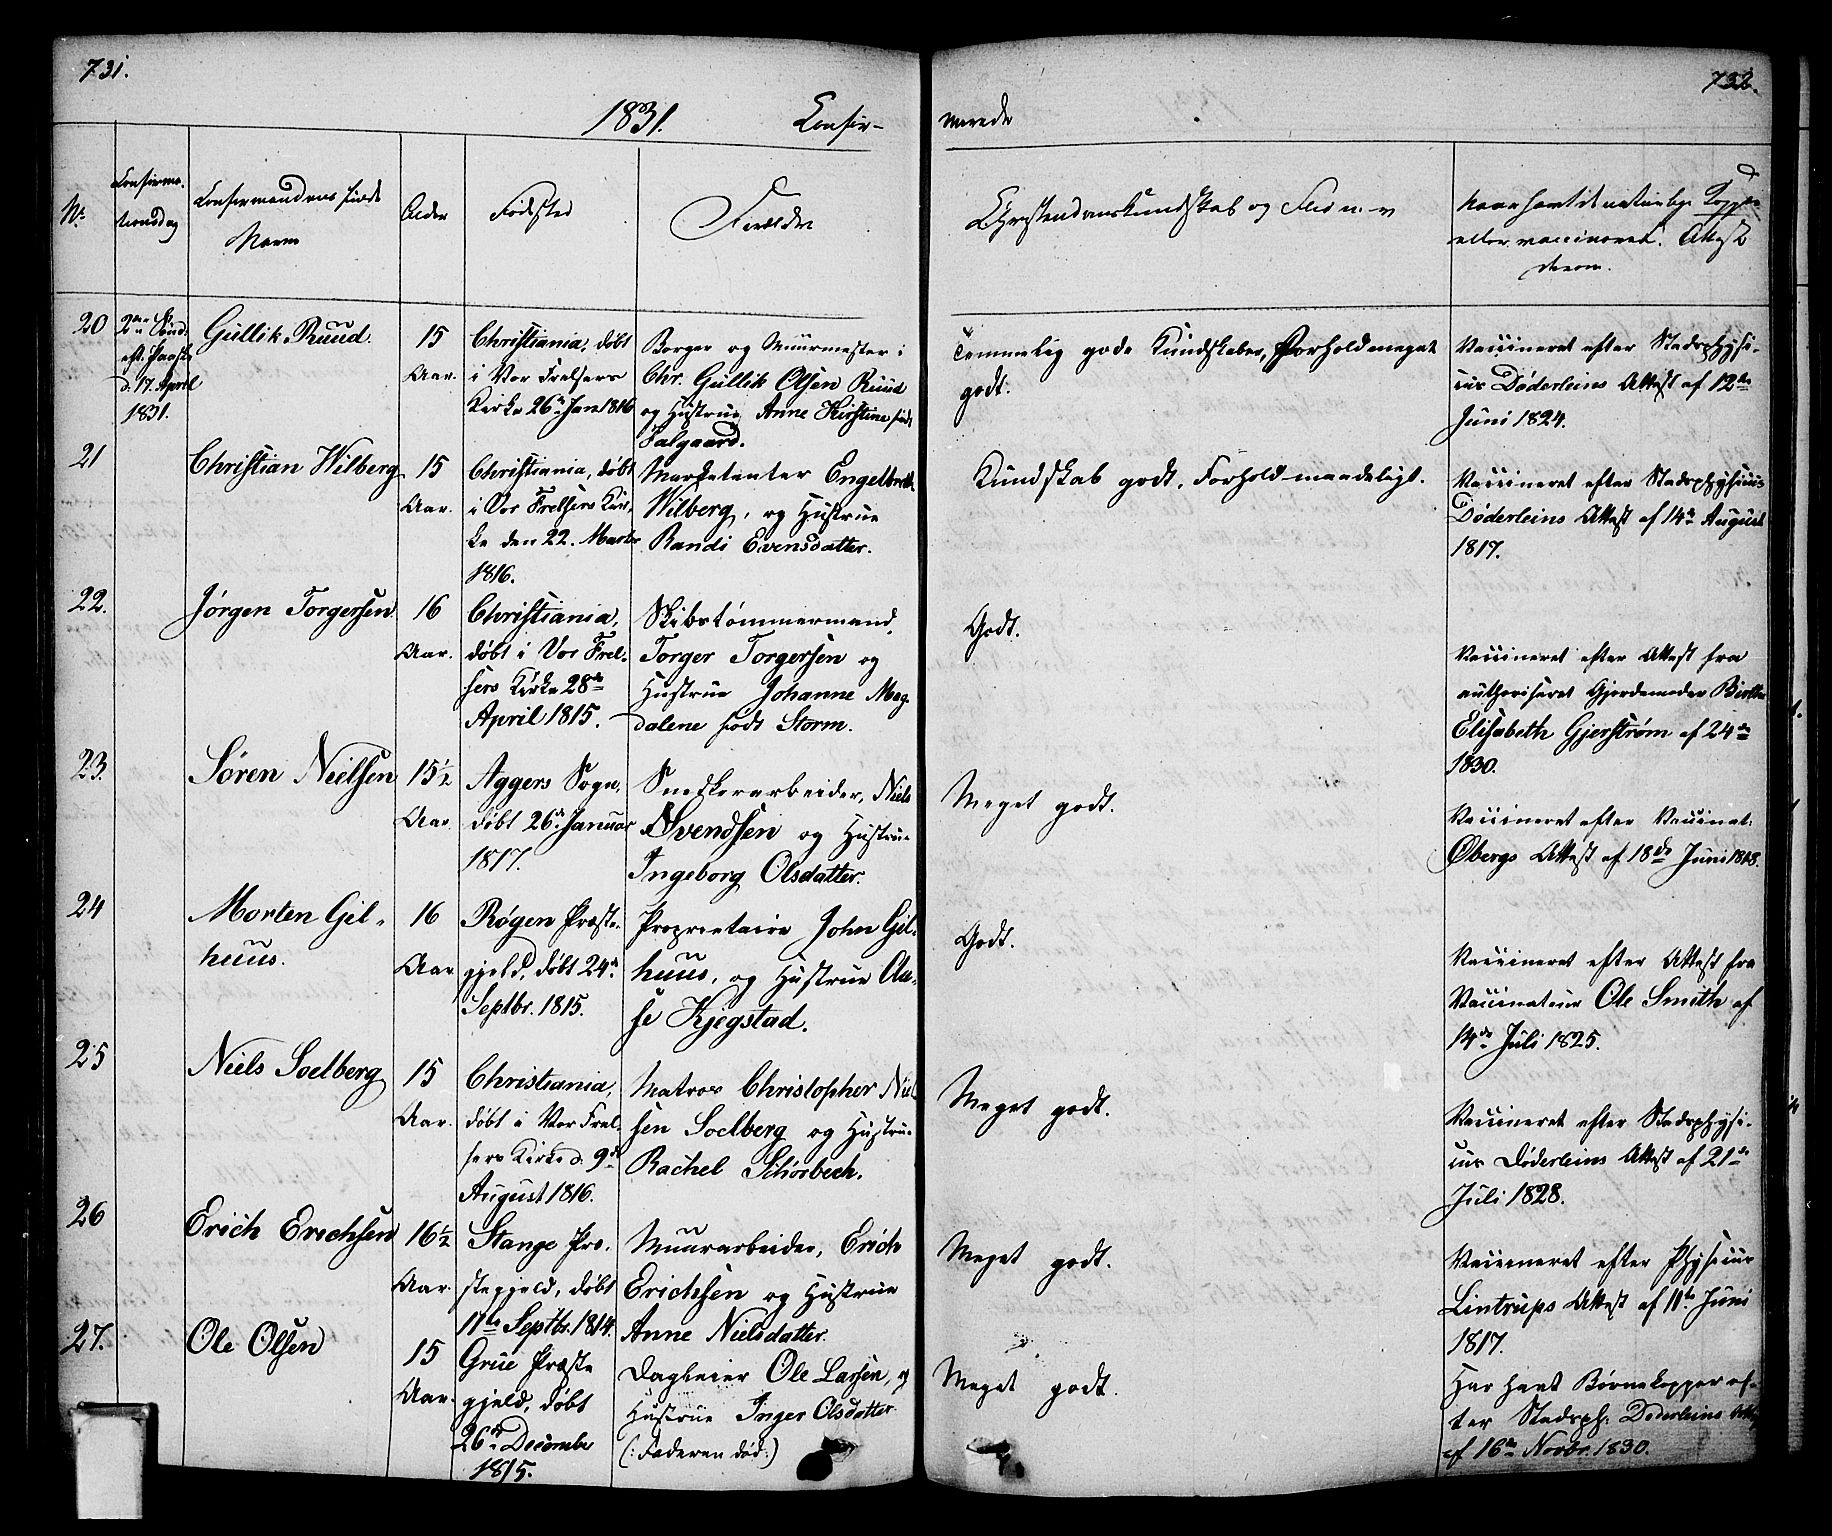 731.
732.
1831. Confir-
merede
No.
Confirma-
tionsdag
Confirmandens fulde
Navn
Alder
Fødested
Forældre
Christendomskundskab og Flid m. v
Naar havt de naturlige Kopper
eller vaccineret. Attest
derom.
20
2den Sønd.
eft. Paaske
d. 17. April
1831.
Gullik Ruud.
15
Aar.
Christiania, døbt
i Vor Frelsers
Kirke 26de Jan 1816
Borger og Muurmester i
Chr. Gullik Olsen Ruud
og Hustrue Anne Kirstine født
Falgaard.
Temmelig gode Kundskaber, Forhold meget
godt.
Vaccineret efter Stadsphysi-
cus Døderleins Attest af 12te
Juni 1824.
21
Christian Wilberg
15
Aar.
Christiania, døbt
i Vor Frelsers Kir-
ke den 22. Marts
1816.
Marketenter Engelbreth
Wilberg, og Hustrue
Randi Evensdatter.
Kundskab godt, Forhold maadeligt.
Vaccineret efter Stadsphysicus
Døderleins Attest af 14de August
1817.
22.
Jørgen Torgersen
16
Aar.
Christiania,
døbt i Vor Frel-
sers Kirke 28de
April 1815.
Skibstømmermand,
Torger Torgersen og
Hustrue Johanne Mag-
dalene født Storm.
Godt.
Vaccineret efter Attest fra
authoriseret Gjordemoder Birthe
Elisabeth Gjerstrøm af 24de
1830.
23.
Søren Nielsen
15½
Aar.
Aggers Sogn,
døbt 26de Januar
1817.
Snedkerarbeider, Niels
Svendsen og Hustrue
Ingeborg Olsdatter.
Meget godt.
Vaccineret efter Vaccinat:
Øbergs Attest af 18de Juni 1818.
24
Morten Gil-
huus.
16
Aar
Røgen Præste-
gjeld, døbt 24de
Septbr. 1815.
Proprietaire John Gil-
huus, og Hustrue Aa-
se Kjegstad.
Godt.
Vaccineret efter Attest fra
Vaccinateur Ole Smith af
14de Juli 1825.
25
Niels Soelberg
15
Aar.
Christiania,
døbt i Vor Frel-
sers Kirke d. 9de
August 1816.
Matros Christopher Niel-
sen Soelberg og Hustrue
Rachel Schørbech.
Meget godt.
Vaccineret efter Stadsphysi-
cus Døderleins Attest af 21de
Juli 1828.
26
Erich Erichsen
16½
Aar.
Stange Præ-
stegjeld, døbt
11te Septbr. 1814.
Muurarbeider, Erich
Erichsen og Hustrue
Anne Nielsdatter.
Meget godt.
Vaccineret efter Physicus
Lintrups Attest af 11te Juni
1817.
27.
Ole Olsen
15
Aar.
Grue Præste
gjeld, døbt
26de Decembr
1815.
Dagleier Ole Larsen, og
Hustrue Inger Olsdatter
(: Faderen død :)
Meget godt.
Har havt Børnekopper ef-
ter Stadsph: Døderleins Attest
af 16de Novbr. 1830.